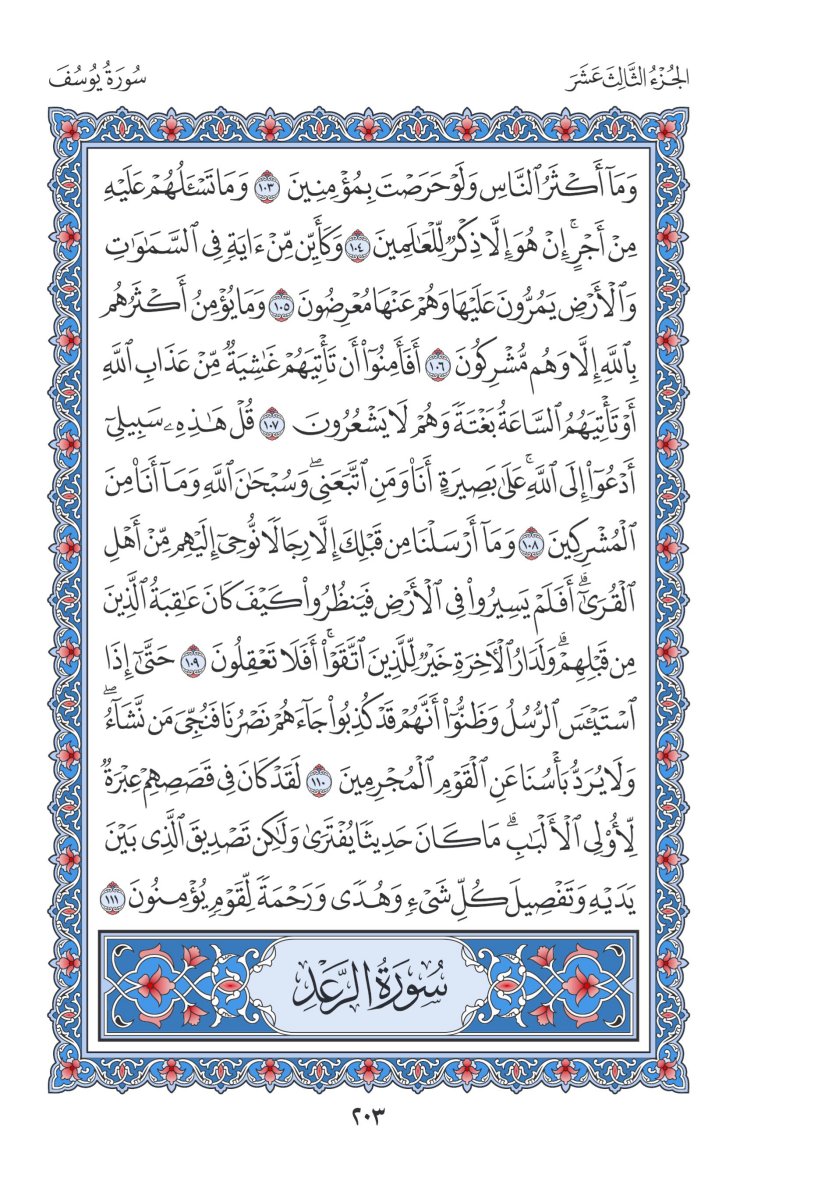 الجُزْءُ الثَّالِثَ عَشَرَ
سُورَةُ يُوسُفَ
وَمَآ أَكْثَرُ ٱلنَّاسِ وَلَوْ حَرَصْتَ بِمُؤْمِنِينَ ١٠٣ وَمَا تَسْـَٔلُهُمْ عَلَيْهِ
مِنْ أَجْرٍۚ إِنْ هُوَ إِلَّا ذِكْرٌ لِّلْعَٰلَمِينَ ١٠٤ وَكَأَيِّن مِّنْ ءَايَةٍ فِى ٱلسَّمَٰوَٰتِ
وَٱلْأَرْضِ يَمُرُّونَ عَلَيْهَا وَهُمْ عَنْهَا مُعْرِضُونَ ١٠٥ وَمَا يُؤْمِنُ أَكْثَرُهُم
بِٱللَّهِ إِلَّا وَهُم مُّشْرِكُونَ ١٠٦ أَفَأَمِنُوٓا۟ أَن تَأْتِيَهُمْ غَٰشِيَةٌ مِّنْ عَذَابِ ٱللَّهِ
أَوْ تَأْتِيَهُمُ ٱلسَّاعَةُ بَغْتَةً وَهُمْ لَا يَشْعُرُونَ ١٠٧ قُلْ هَٰذِهِۦ سَبِيلِىٓ
أَدْعُوٓا۟ إِلَى ٱللَّهِۚ عَلَىٰ بَصِيرَةٍ أَنَا۠ وَمَنِ ٱتَّبَعَنِىۖ وَسُبْحَٰنَ ٱللَّهِ وَمَآ أَنَا۠ مِنَ
ٱلْمُشْرِكِينَ ١٠٨ وَمَآ أَرْسَلْنَا مِن قَبْلِكَ إِلَّا رِجَالًا نُّوحِىٓ إِلَيْهِم مِّنْ أَهْلِ
ٱلْقُرَىٰٓۗ أَفَلَمْ يَسِيرُوا۟ فِى ٱلْأَرْضِ فَيَنظُرُوا۟ كَيْفَ كَانَ عَٰقِبَةُ ٱلَّذِينَ
مِن قَبْلِهِمْۗ وَلَدَارُ ٱلْـَٔاخِرَةِ خَيْرٌ لِّلَّذِينَ ٱتَّقَوْا۟ۚ أَفَلَا تَعْقِلُونَ ١٠٩ حَتَّىٰٓ إِذَا
ٱسْتَيْـَٔسَ ٱلرُّسُلُ وَظَنُّوٓا۟ أَنَّهُمْ قَدْ كُذِبُوا۟ جَآءَهُمْ نَصْرُنَا فَنُجِّىَ مَن نَّشَآءُۖ
وَلَا يُرَدُّ بَأْسُنَا عَنِ ٱلْقَوْمِ ٱلْمُجْرِمِينَ ١١٠ لَقَدْ كَانَ فِى قَصَصِهِمْ عِبْرَةٌ
لِّأُو۟لِى ٱلْأَلْبَٰبِۗ مَا كَانَ حَدِيثًا يُفْتَرَىٰ وَلَٰكِن تَصْدِيقَ ٱلَّذِى بَيْنَ
يَدَيْهِ وَتَفْصِيلَ كُلِّ شَىْءٍ وَهُدًى وَرَحْمَةً لِّقَوْمٍ يُؤْمِنُونَ ١١١
سُورَةُ الرَّعْدِ
٢٠٣